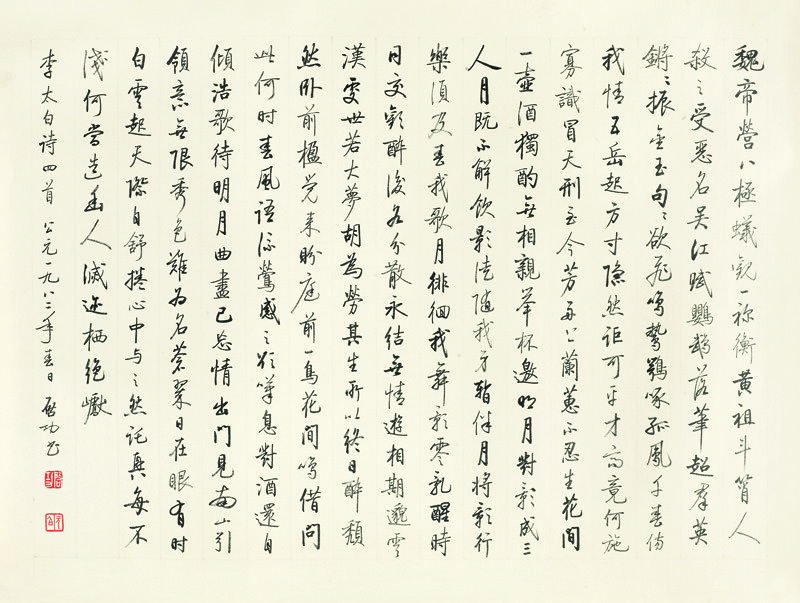 魏帝營八極蟻觀一祢衡黃祖斗筲人
殺之受惡名吳江賦鸚鵡落筆超羣英
鏘〻振金玉句〻欲飛鳴鷙鶚啄孤鳳千春傷
我情五岳起方寸隱然詎可平才高竟何施
寡識冒天刑至今芳洲上蘭蕙不忍生花間
一壺酒獨酌無相親舉杯邀明月對影成三
人月既不解飲影徒隨我身暫伴月將影行
樂須及春我歌月徘徊我舞影零亂醒時
同交歡醉後各分散永結無情遊相期邈雲
漢處世若大夢胡為勞其生所以終日醉頹
然臥前楹覺來盼庭前一鳥花間鳴借問
此何時春風語流鶯感之欲嘆息對酒還自
傾浩歌待明月曲盡已忘情出門見南山引
領意無限秀色難為名蒼翠日在眼有時
白雲起天際自舒捲心中與之然託興每不
淺何當造幽人滅迹栖絕巘
李太白诗四首 公元一九八三年春日 啟功書